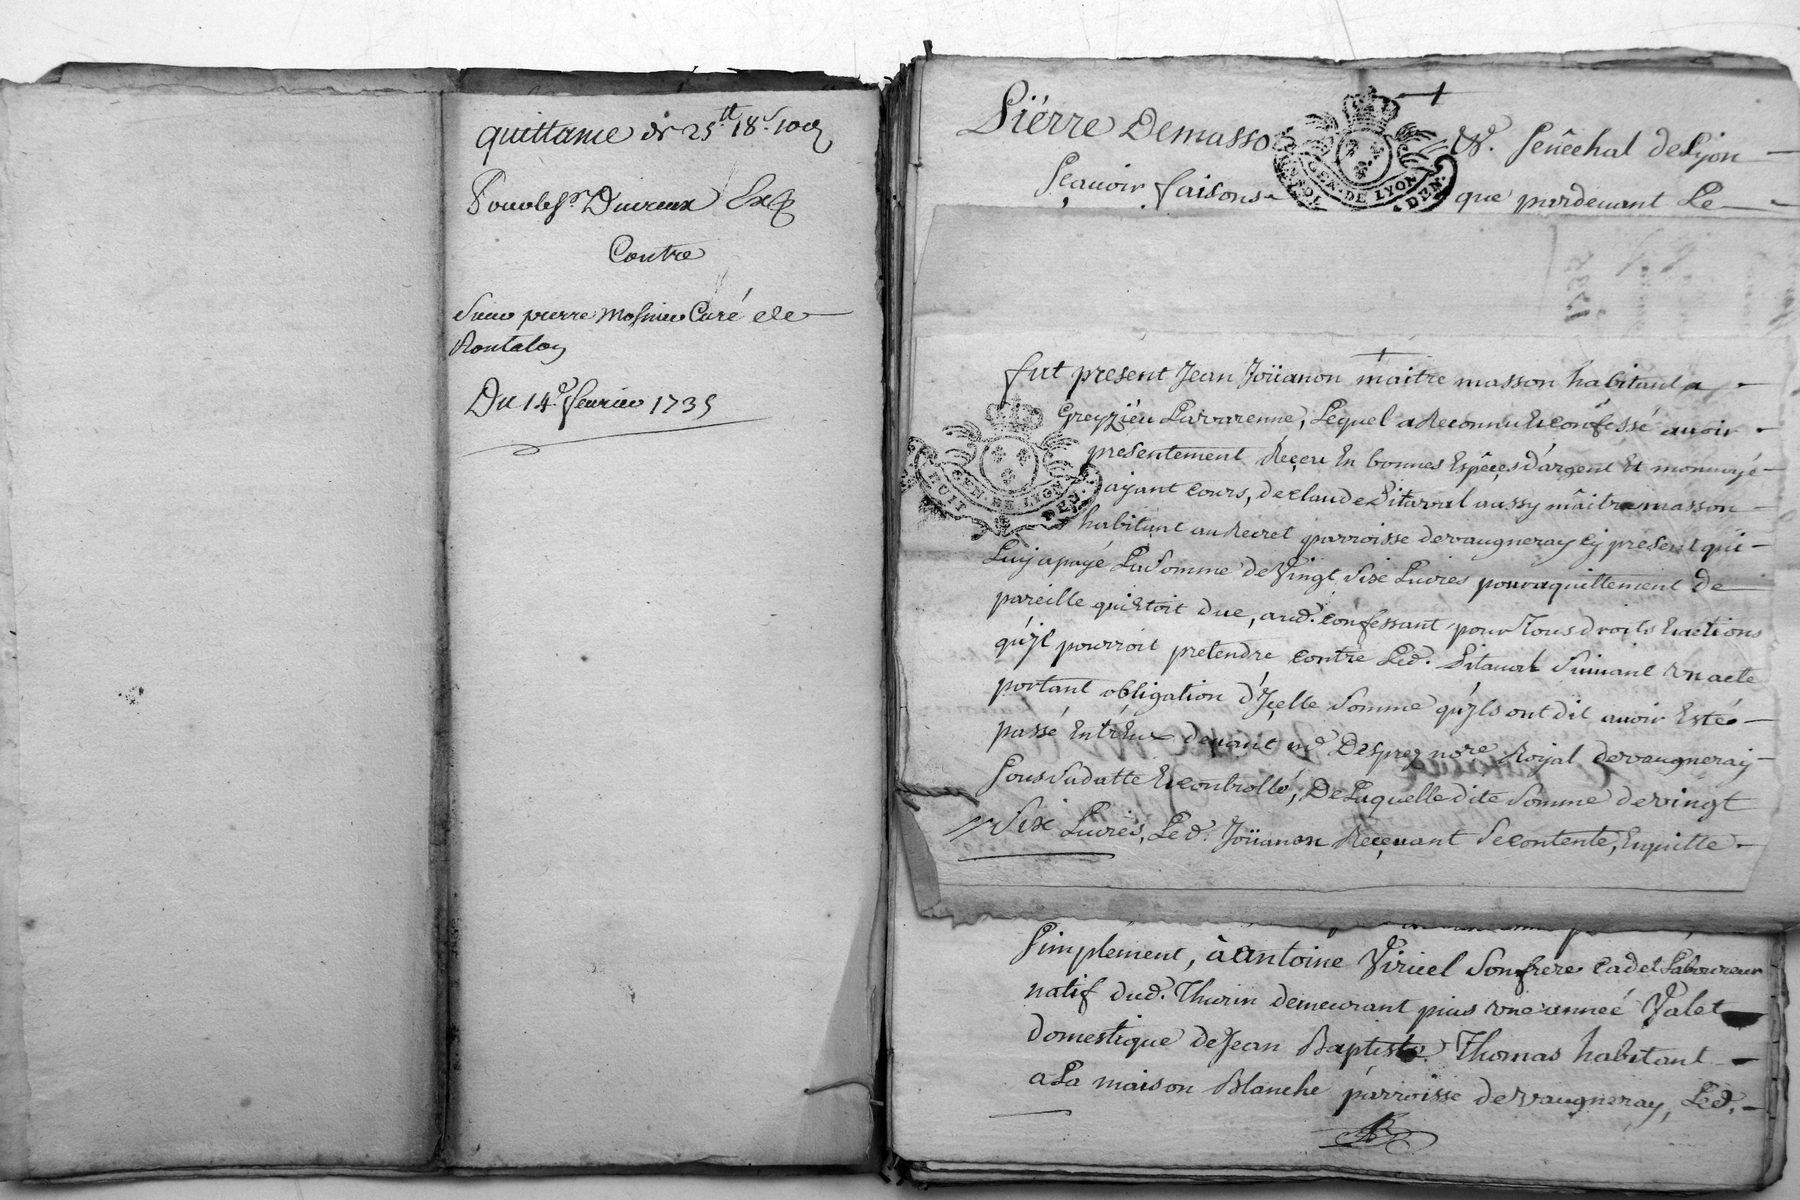 quittance de 25.tt 18.s 10d
Pour le Sr. Duvreux
Contre
Sieur pierre Mosnier Curé de
Rontalon
Du 14.e feurier 1735
Pierre Demasso Sénêchal de Lyon
Sçavoir faisons que pardevant Le
GEN. DE LYON DEN.
fut present Jean Joüanon maitre masson habitant a
Greyziéu Lavarenne, Lequel a Reconnu Et conféssé avoir
présentement Reçeu En bonnes Espêçes d'argent Et monnoyé
ayant cours, de claude Pitaval aussy mâitre masson
habitant au Recret parroisse devaugneray Cy present qui
Luy a payé La Somme de Vingt Six Livres pour aquittement de
pareille qui Etoit due, aud. conféssant pour Tous droits Et actions
qu'jl pourroit pretendre contre Led. Pitaval Suivant un acte
portant obligation d'Jçelle Somme qu'jls ont dit avoir Esté
passé Entr'Eux devant me Desprez nore. Royal devaugneray
Sous Sa datte Et controllé, De Laquelle dite Somme de vingt
Six Livres, Led. Joüanon Reçevant Se contente, En quitte
HUIT GEN. DE LYON DEN.
Simplément, à Antoine Viricel Son frere cadet Laboureur
natif dud. Thurin demeurant puis une anneé Valet
domestique de Jean Baptiste Thomas habitant
a La maison Blanche parroisse de vaugneray, Led.